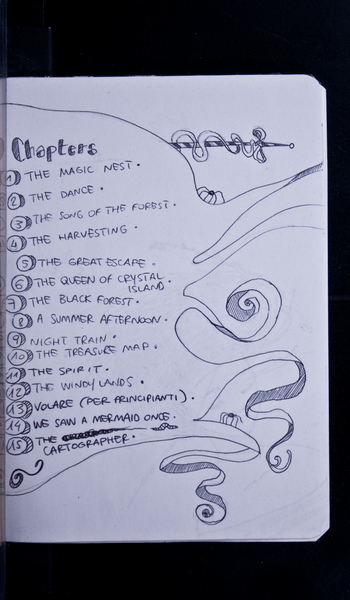 Chapters
1) THE MAGIC NEST.
2) THE DANCE.
3) THE SONG OF THE FOREST.
4) THE HARVESTING.
5) THE GREAT ESCAPE.
6) THE QUEEN OF CRYSTAL
ISLAND.
7) THE BLACK FOREST.
8) A SUMMER AFTERNOON.
9) NIGHT TRAIN.
10) THE TREASURE MAP.
11) THE SPIRIT.
12) THE WINDY LANDS.
13) VOLARE (PER PRINCIPIANTI).
14) WE SAW A MERMAID ONCE.
15) THE
CARTOGRAPHER.